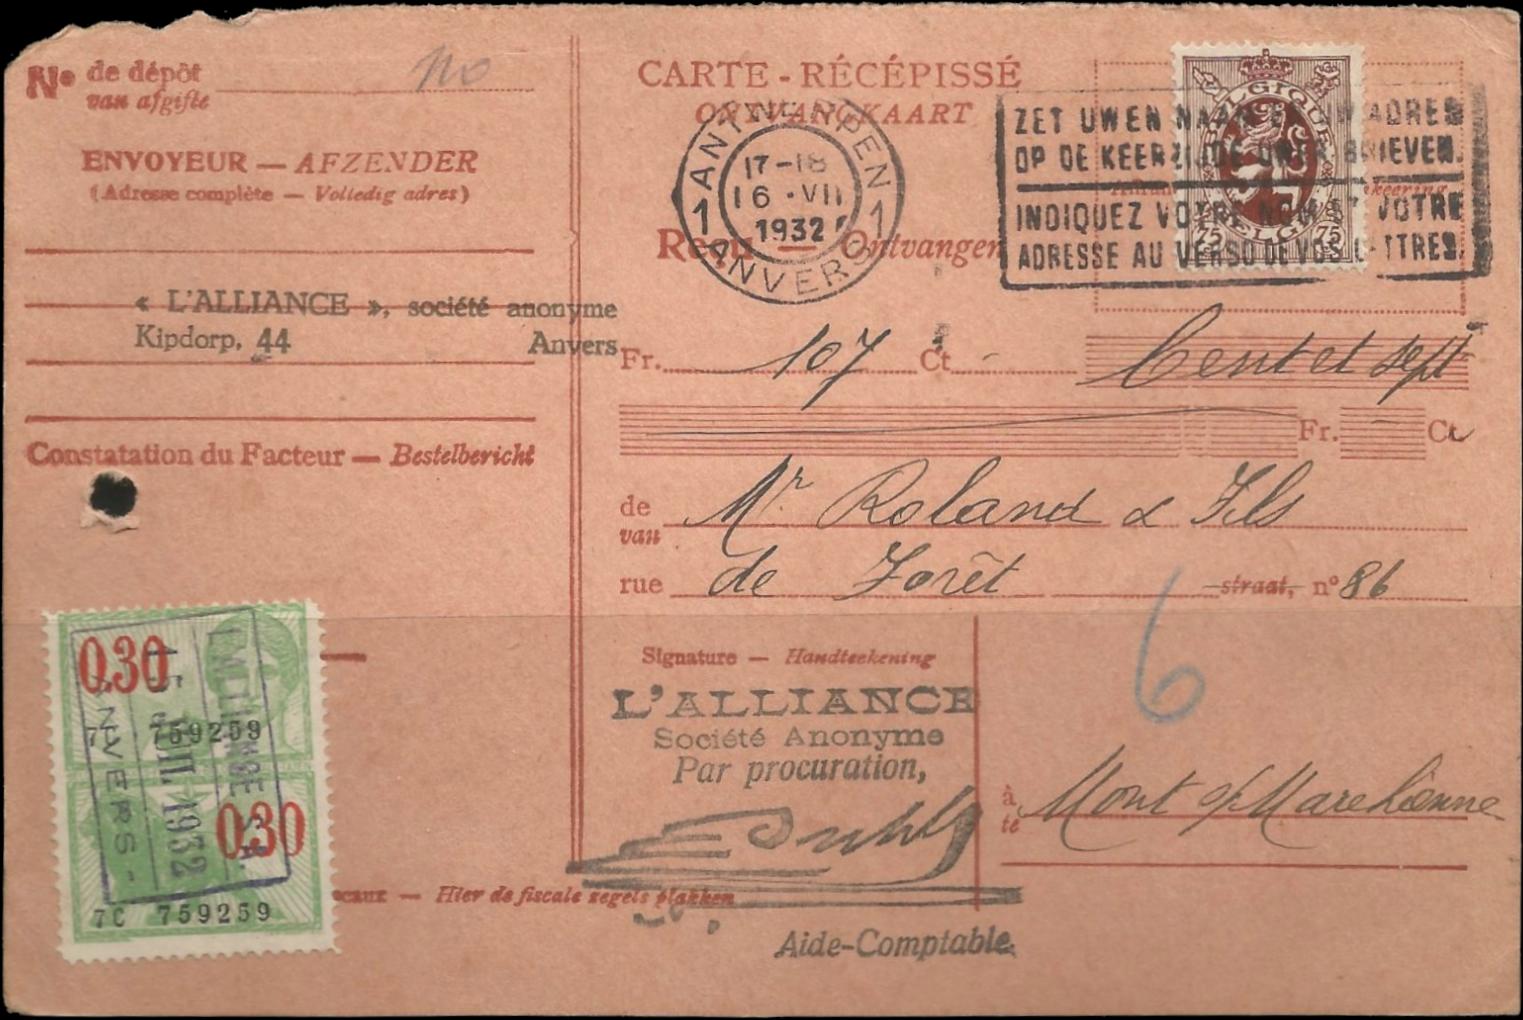 N° de dépôt
van afgifte
CARTE-RÉCÉPISSÉ
ONTVANGKAART
ENVOYEUR — AFZENDER
(Adresse complète — Volledig adres)
ANTWERPEN
17-18
16·VII
1932
1 1
ANVERS
ZET UWEN NAAM EN UW ADRES
OP DE KEERZIJDE UWER BRIEVEN.
INDIQUEZ VOTRE NOM ET VOTRE
ADRESSE AU VERSO DE VOS LETTRES.
BELGIQUE
75 BELGIË 75
Reçu — Ontvangen
« L'ALLIANCE », société anonyme
Kipdorp, 44 Anvers
Fr. 107 Ct - Cent et sept
Fr. - Ct
Constatation du Facteur — Bestelbericht
de
van Mr Roland & Fils
rue de Forêt straat, n° 86
6
Signature — Handteekening
L'ALLIANCE
Société Anonyme
Par procuration,
à
te Mont s/ Marchienne
0.30
7C 759259
15 JUIL 1932
ANVERS-
0.30
7C 759259
— Hier de fiscale zegels plakken
Aide-Comptable